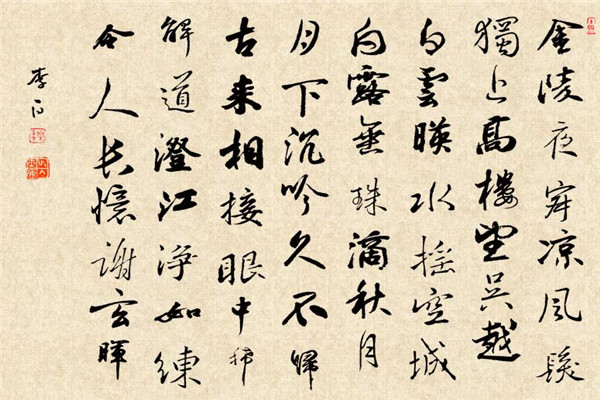 金陵夜寂凉風髮
獨上高樓望吳越
白雲暎水摇空城
白露垂珠滴秋月
月下沉吟久不歸
古來相接眼中稀
解道澄江淨如練
令人長憶謝玄暉
李白